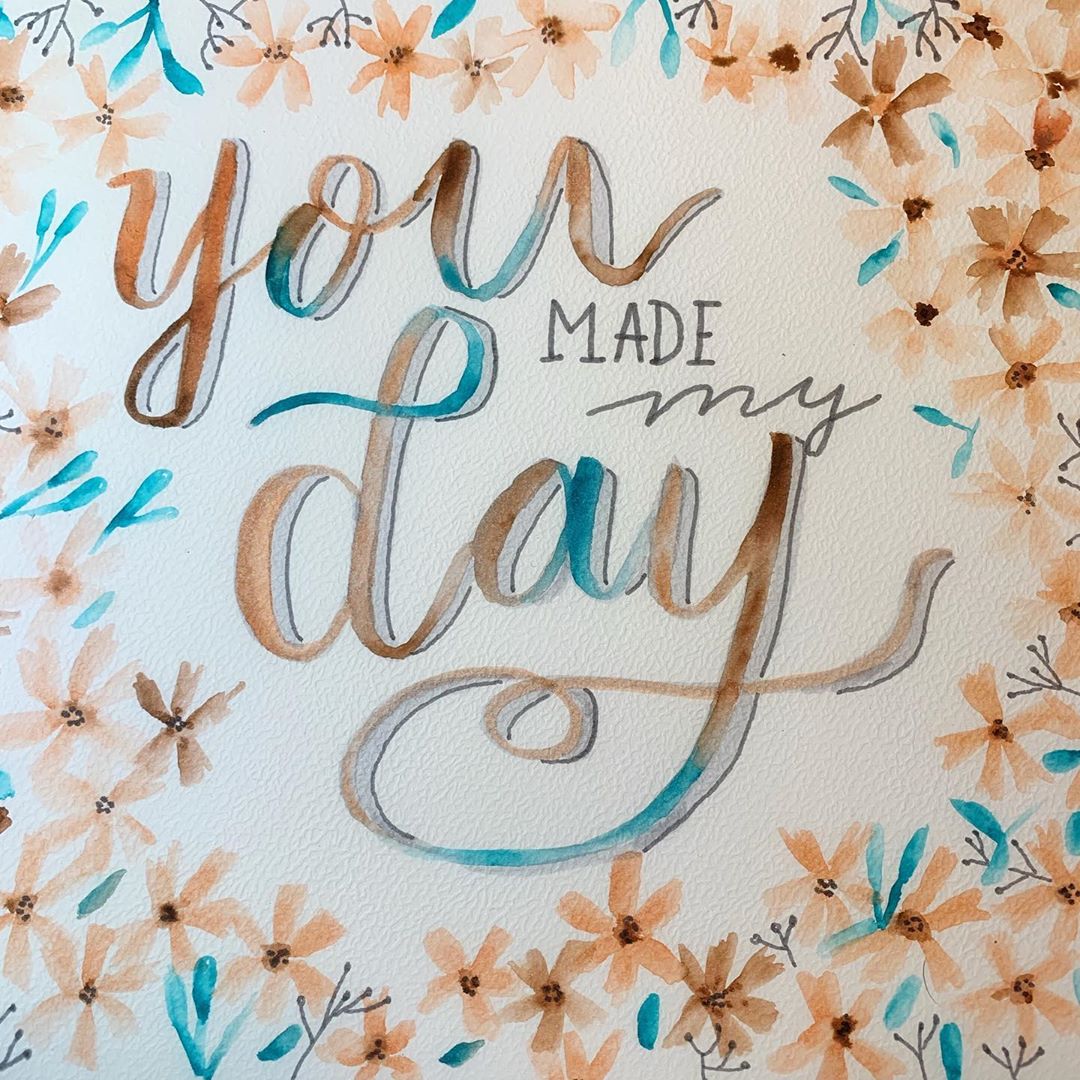 you
MADE
my
day